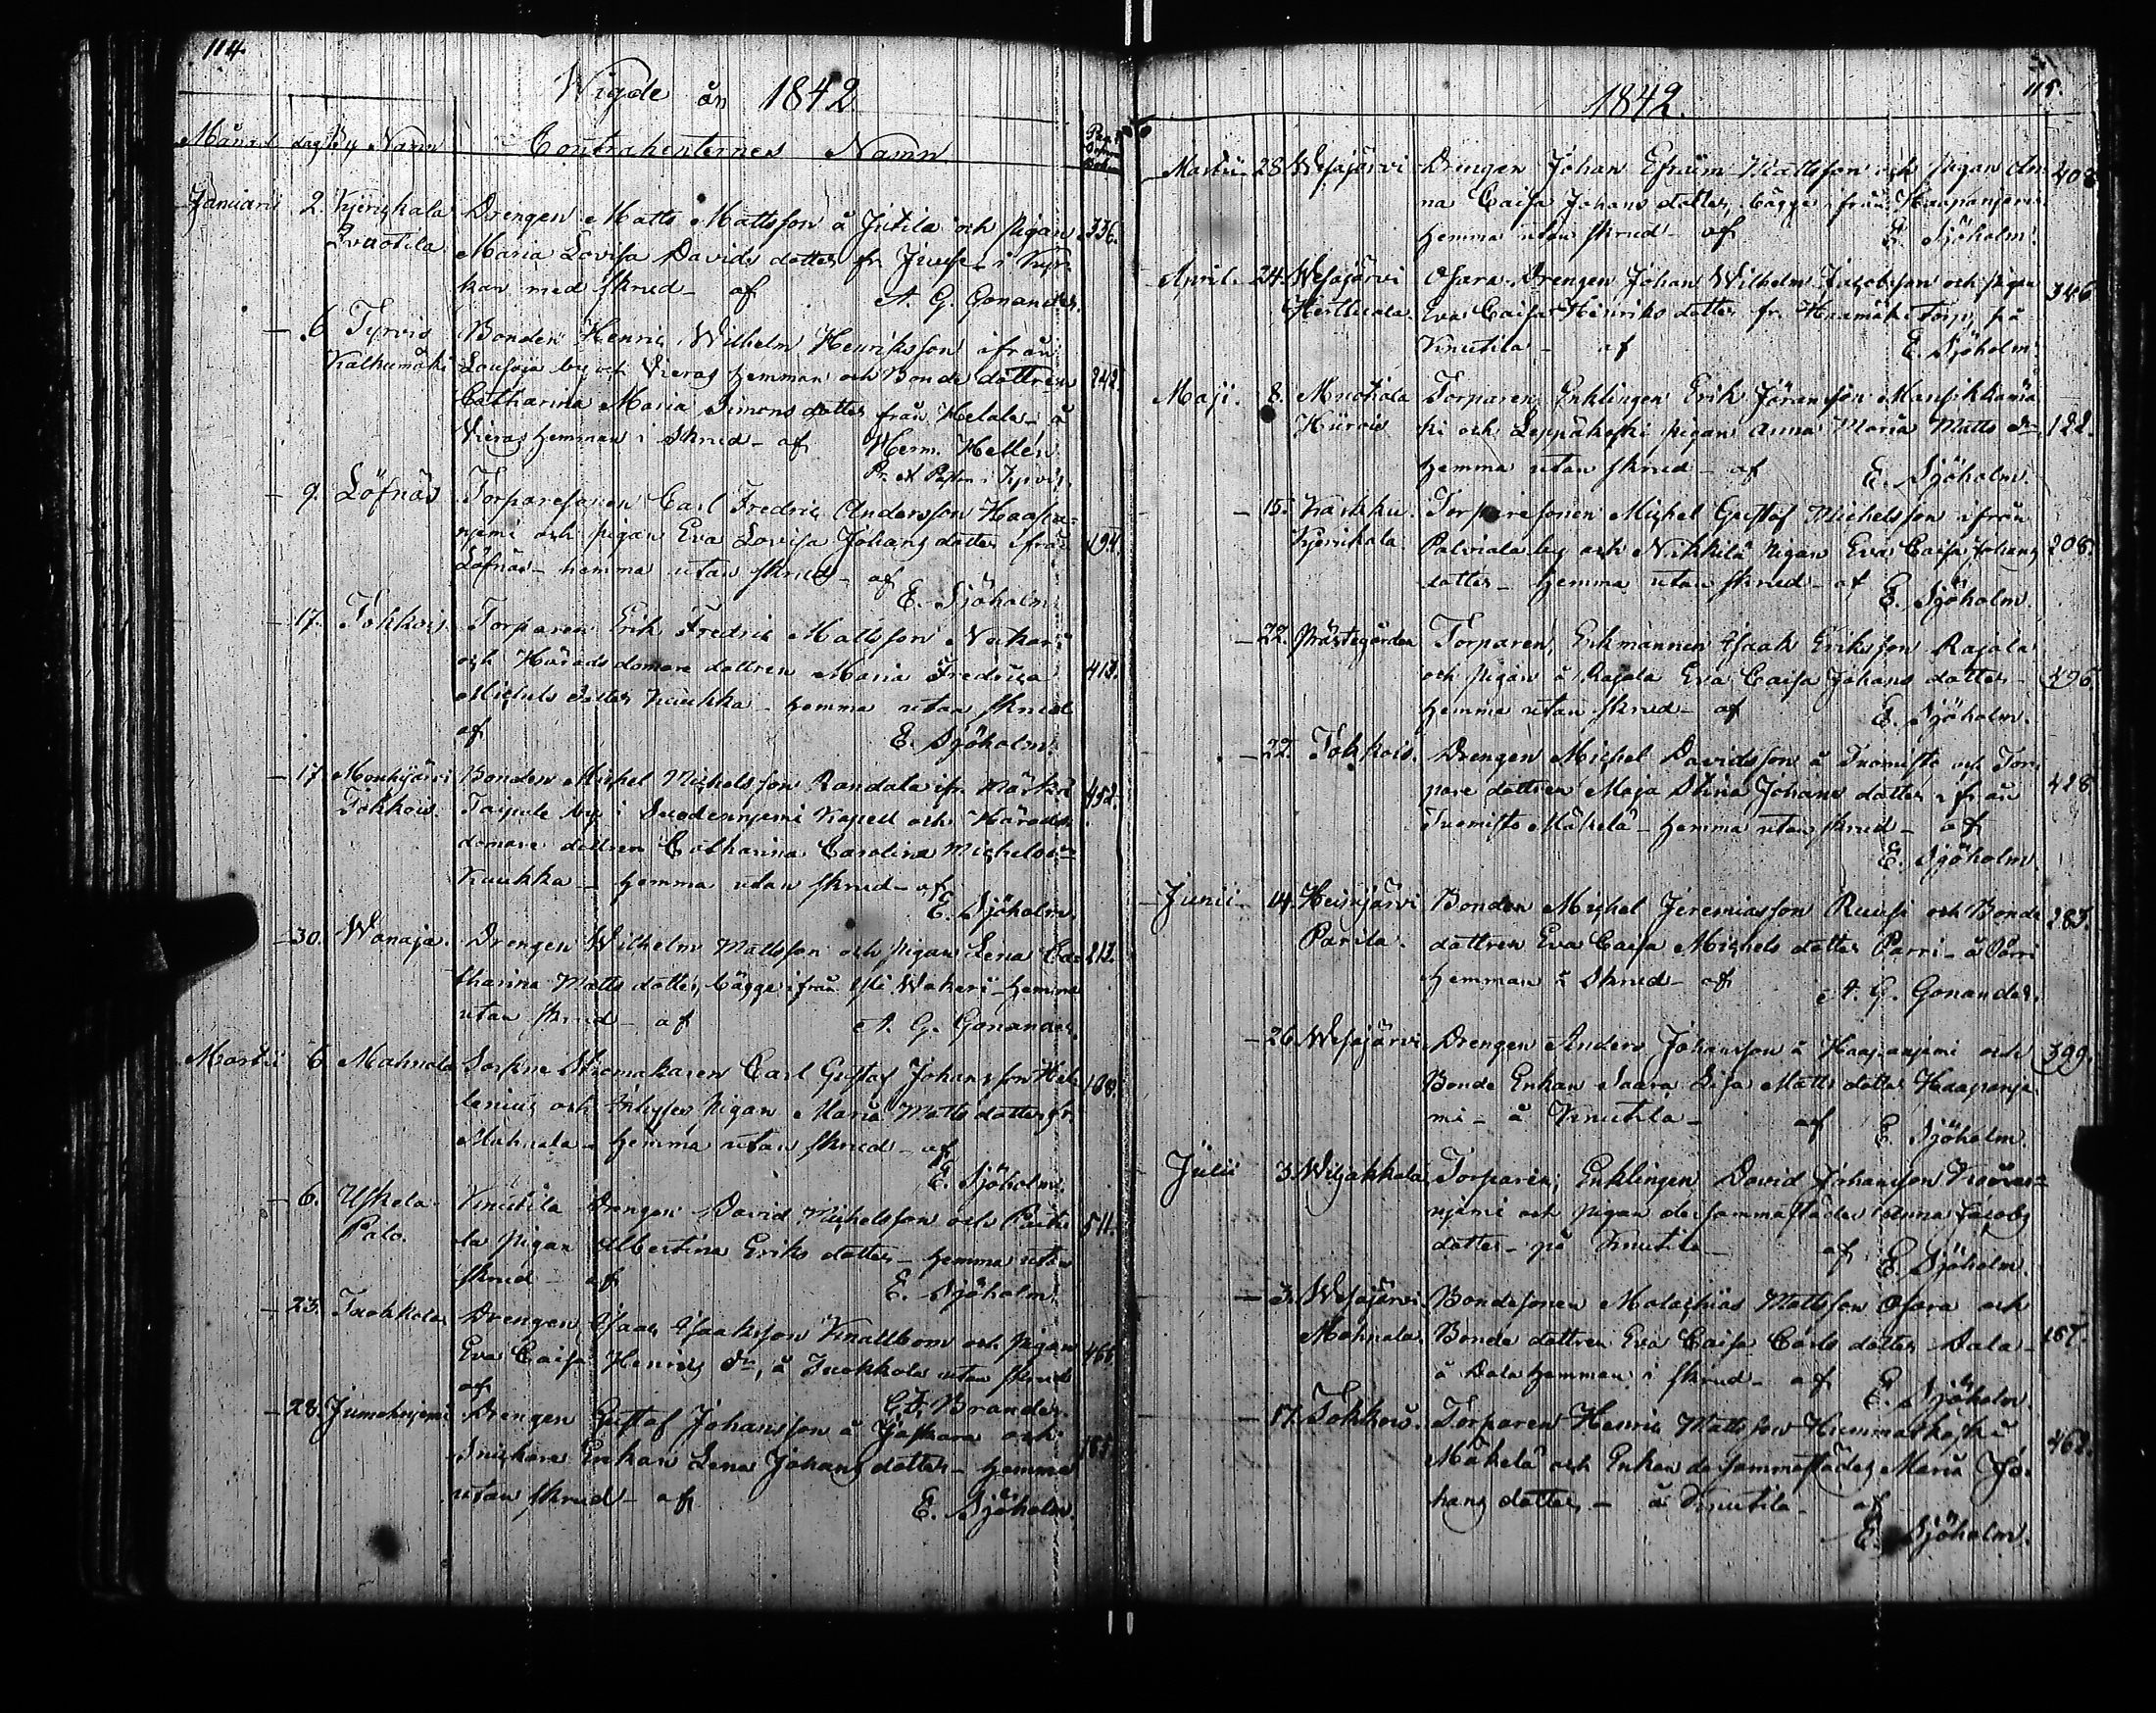 114.
Wigde år 1842
Månad dag By Namn Contrahenternes Namn
Januari 2. Kyröskala Drengen Matts Mattsson å Jutila och pigan 336.
Maria Lovisa Davids dotter fr. i Kyr-
kan med skrud - af A. G. Gonander.
- 6 Tyrvis Bonden Henric Wilhelm Henriksson ifrån
Kalhumäki by och Vieras hemman och Bonde dottren 242.
Catharina Maria Simons dotter från - å
Vieras hemman i skrud - af Herm. Hellén
i Tyrvis.
- 9. Löfnäs Torparesonen Carl Fredric Andersson Haapa-
njemi och pigan Eva Lovisa Johans dotter ifrån 194.
Löfnäs - hemma utan skrud - af
E. Sjöholm.
- 17. Tokkois Torparen Erik Fredric Mattsson
och Häradsdomare dottren Maria Fredrica 418.
Michels dotter Kuukka - hemma utan skrud
af E. Sjöholm.
- 17. Mouhijärvi Bonden Michel Michelsson Randala ifr. 452.
Tokkois. by i Suodennjemi Kapell och Härads
domare dottren Catharina Carolina Michels
Kuukka - hemma utan skrud - af
E. Sjöholm.
- 30. Wanaja. Drengen Wilhelm Mattsson och pigan Lena Ca-
tharina Matts dotter, bägge ifrån - hemma
utan skrud - af A. G. Gonander.
Martii 6 Mahnala Carl Gustaf Johansson
och pigan Maria Matts dotter fr.
Mahnala - hemma utan skrud - af
E. Sjöholm.
- 6. Uskela Knutila Drengen David Michelsson och
Palo. pigan Albertina Eriks dotter - hemma utan 511.
skrud - af E. Sjöholm.
- 23. Tuokkola Drengen Isaac Isaaksson Knallbom och pigan
Eva Caisa Henrics dr, å Tuokkola utan skrud
af Brander.
- 28. Jumesnjemi Drengen Gustaf Johansson å och
Enkan Lena Johans dotter - hemma
utan skrud - af E. Sjöholm.
115.
1842.
Martii - 28. Wesajärvi Drengen Johan Efraim Mattsson och pigan An-
na Caisa Johans dotter, bägge ifrån Haapanjemi
hemma utan skrud - af E. Sjöholm.
April. - 24. Wesajärvi Osara Drengen Johan Wilhelm Jacobsson och pigan 346
Herttuala. Eva Caisa Henriks dotter fr. Torp, på
Knutila - af E. Sjöholm.
Maji. 8. Torparen Enklingen Erik Jöransson Mansikkamä-
ki och Leppäkoski pigan Anna Maria Matts dr 122.
hemma utan skrud - af E. Sjöholm.
- 15. Karkku. Torparesonen Michel Gustaf Michelsson ifrån
Palviala by och Nikkilä pigan Eva Caisa Johans 208.
dotter - hemma utan skrud - af E. Sjöholm.
- 22. Prästegården Torparen, Enkmannen Isaak Eriksson Rajala
och pigan å Rajala Eva Caisa Johans dotter - 396.
hemma utan skrud - af E. Sjöholm.
- 22. Tokkois. Drengen Michel Davidsson å Tuomisto och Tor-
pare dottren Maja Stina Johans dotter ifrån 428
Tuomisto Mäkelä - hemma utan skrud - af
E. Sjöholm.
Junii - 14. Heinijärvi Bonden Michel Jeremiasson Ruusi och Bonde 283.
Parila. dottren Eva Caisa Michels dotter Parri - å Parri
hemman i skrud - af A. G. Gonander.
- 26. Wesajärvi Drengen Anders Johansson å Haapanjemi och 399.
Bonde Enkan Saara Lisa Matts dotter Haapanje-
mi - å Knutila - af E. Sjöholm.
Julii 3. Wiljakkala Torparen, Enklingen David Johansson
njemi och pigan dersammastädes Anna Jacobs
dotter - på Knutila - af E. Sjöholm.
- 3. Wesajärvi Bondesonen Malachias Mattsson Osara och
Mahnala. Bonde dottren Eva Caisa Carls dotter Dala -
å Dala hemman i skrud - af E. Sjöholm.
- 17. Tokkois. Torparen Henric Mattsson
Mäkelä och Enkan dersammastädes Maria Jo- 462.
hans dotter - å Knutila - af
E. Sjöholm.